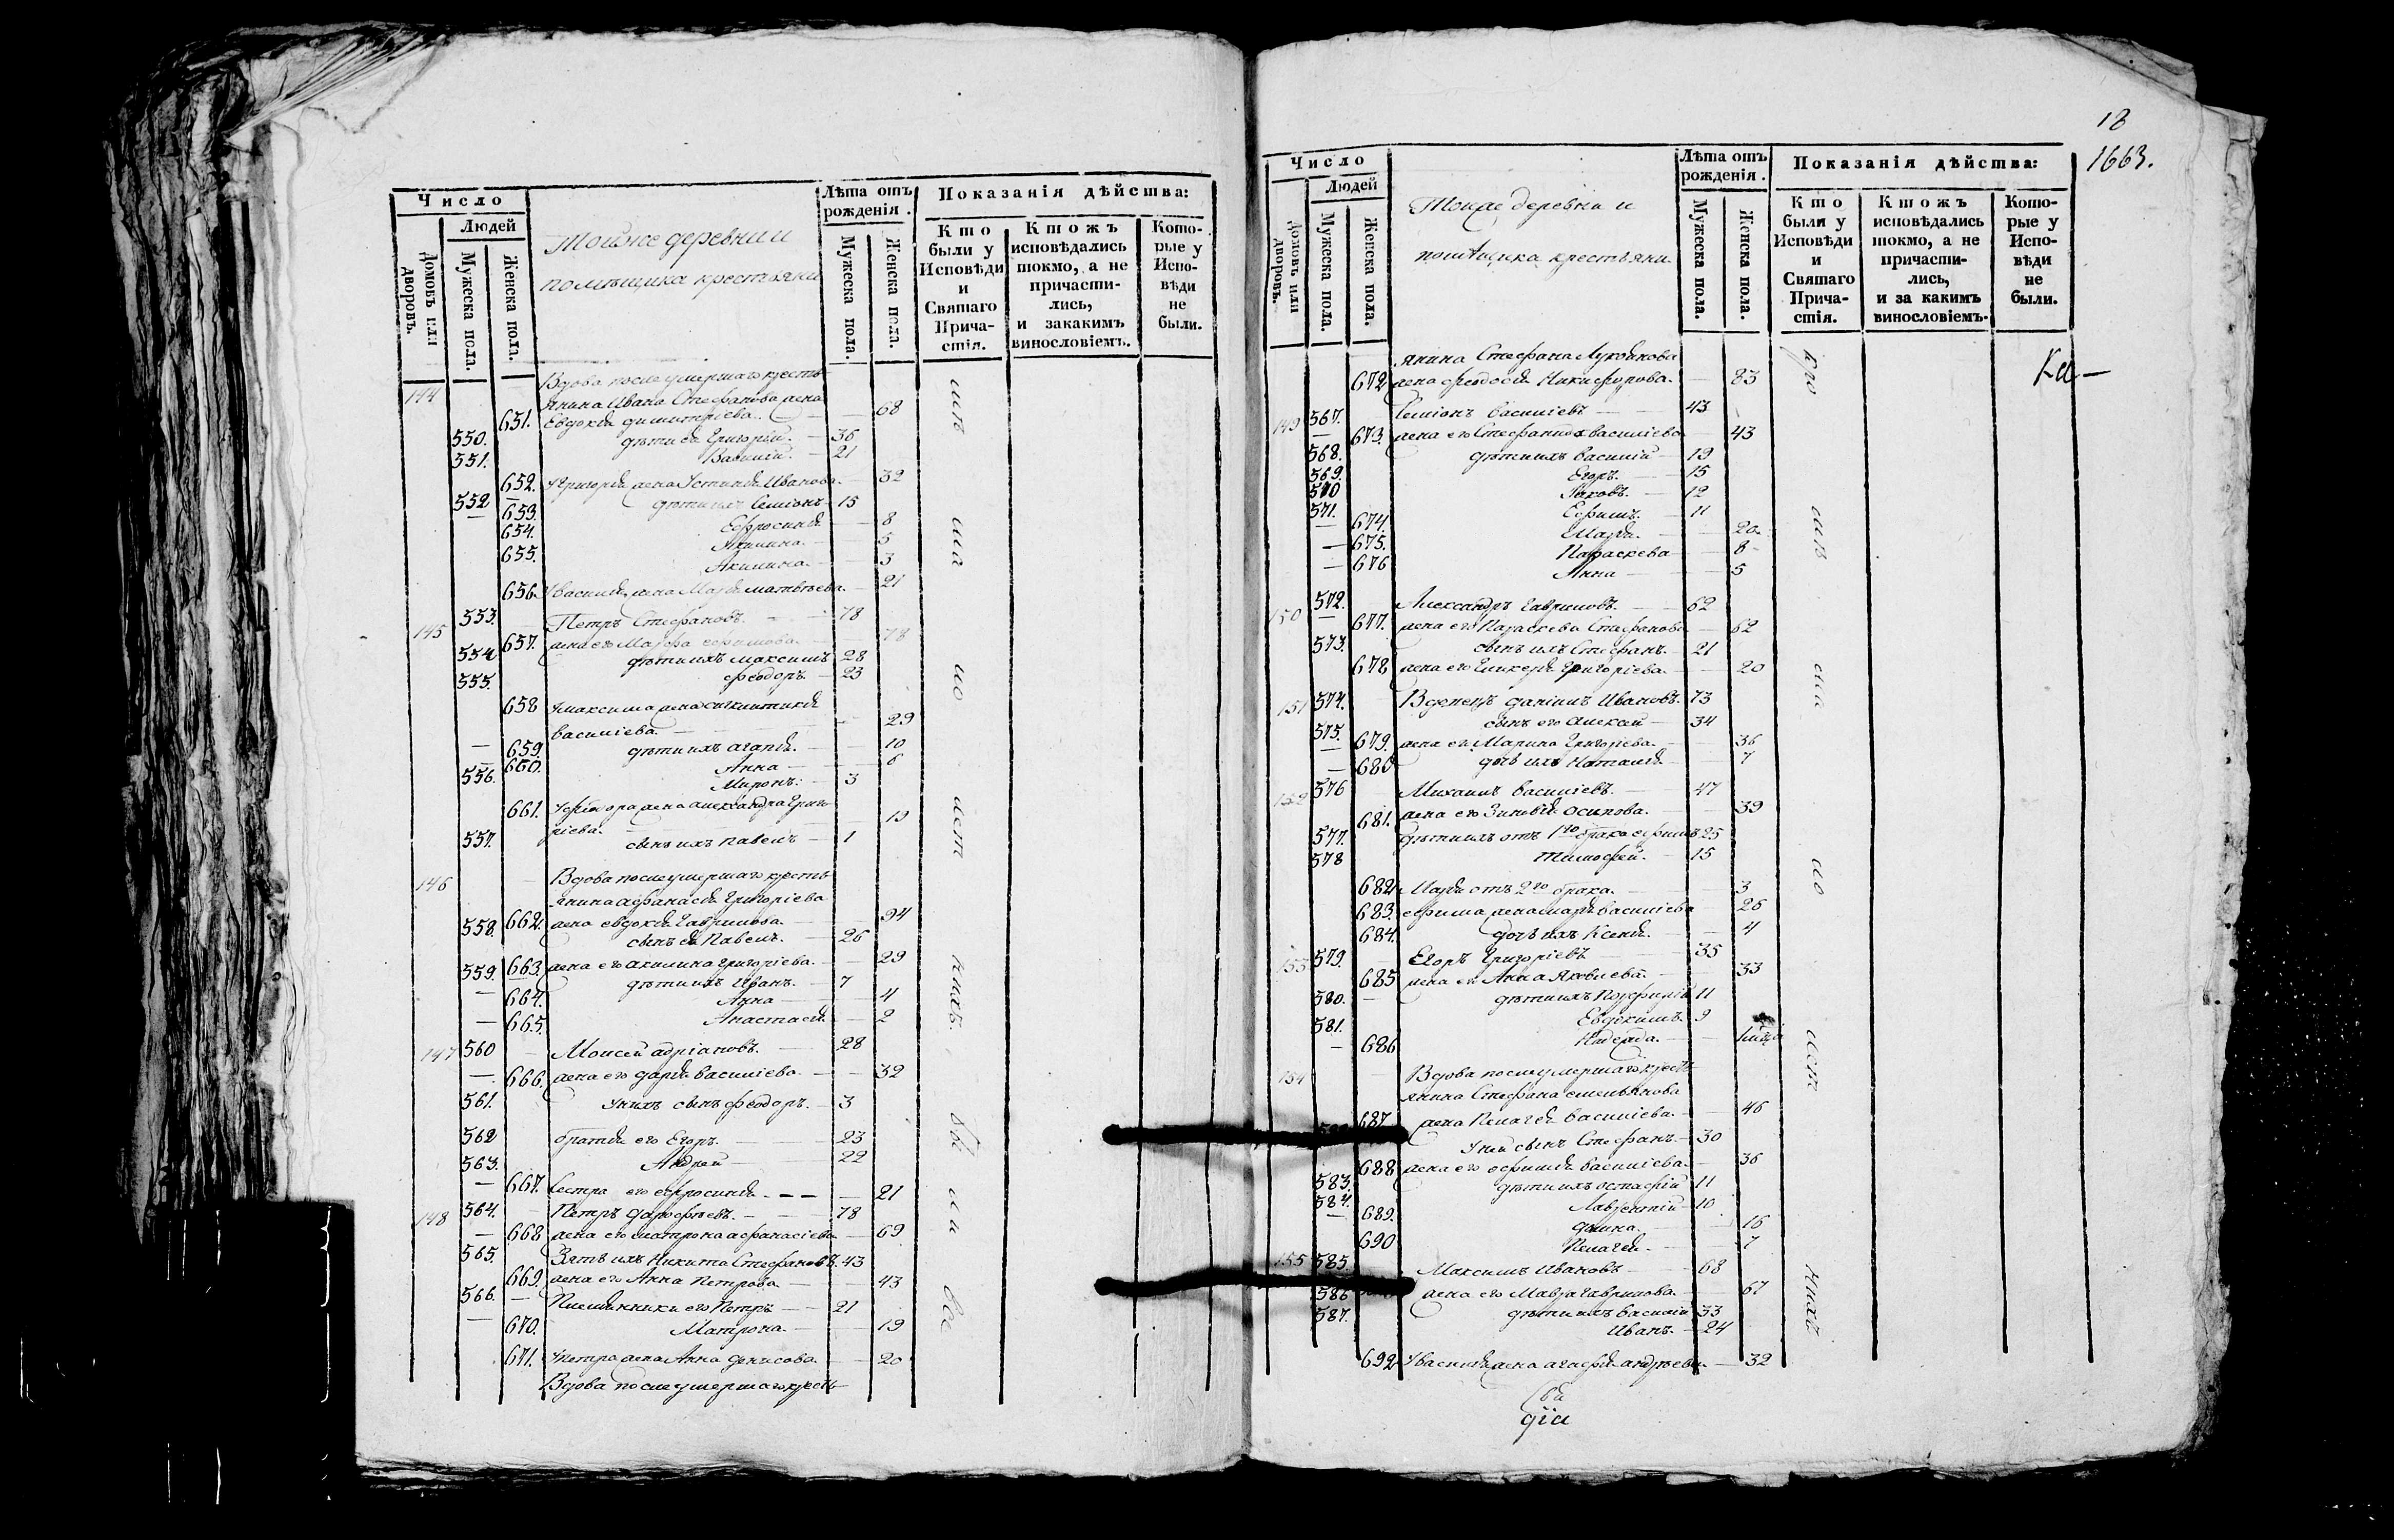 Число
Людей
Домовъ или дворовъ.
Мужеска пола.
Женска пола.
Тойже деревни и
помѣщика крестьяни
Лѣта отъ рожденія.
Мужеска пола.
Женска пола.
Показанія дѣйства:
Кто были у Исповѣди и Святаго Прича-стія.
Ктожъ исповѣдались токмо, а не причасти-лись, и закакимъ винословіемъ.
Кото-рые у Испо-вѣди не были.
144 Вдова после умершаго кресть-
янина Ивана Стефанова жена
651. Евдокія димитріева. — 68
550. дѣти ея Григорій. — 36
551. Василій. — 21
652. У Григорія жена Устинія Иванова. — 32
552 дѣти ихъ Семіонъ — 15
653. Ефросинія — 8
654. Акилина. — 5
655. Акилина. — 3
656. У василія жена Марія матвѣева. — 21
145 553. Петръ Стефановъ. — 78
657. жена его Марфа ефимова. — 78
554 дѣти ихъ максимъ 28
555. феодоръ. — 23
658 У максима жена
василіева. — 29
659. дѣти ихъ агапія. — 10
660. Анна — 6
556. Миронъ. — 3
661. У феодора жена александра Григо-
ріева. — 19
557. сынъ ихъ павелъ — 1
146 Вдова после умершаго кресть-
янина афанасія Григоріева
662. жена евдокія Гаврилова. — 94
558. сынъ ея Павелъ. — 26
663. жена его акилина григоріева. — 29
559. дѣти ихъ Иванъ. — 7
664. Анна — 4
665. Анастасія. — 2
147 560 Моисей адріановъ. — 28
666. жена его дарія василіева. — 32
561. У нихъ сынъ феодоръ. — 3
562 братія его Егоръ. — 23
563. Андрей — 22
667. Сестра его ефросинія — 21
148 564. Петръ дорофѣевъ. — 78
668 жена его матрона афанасіева — 69
565. Зять ихъ Никита Стефановъ. 43
669. жена его Анна Петрова — 43
566. Племянники его Петръ — 21
670. Матрона. — 19
671. У петра жена Анна денисова. — 20
Вдова после умершаго кресть-
18
1663.
Число
Людей
Домовъ или дворовъ.
Мужеска пола.
Женска пола.
Тойже деревни и
помѣщика крестьяни
Лѣта отъ рожденія.
Мужеска пола.
Женска пола.
Показанія дѣйства:
Кто были у Исповѣди и Святаго Прича-стія.
Ктожъ исповѣдались токмо, а не причасти-лись, и за какимъ винословіемъ.
Кото-рые у Испо-вѣди не были.
янина Стефана
672 жена феодосія Никифорова. — 83
149 567. Семіонъ василіевъ — 43
673. жена его Стефанида василіева 43
568. дѣти ихъ василій — 19
569. Егоръ. — 15
570 Іаковъ. — 12
571. Ефимъ. — 11
674. Марія. — 20
675. Параскева — 8
676 Анна — 5
150 572. Александръ Гавриловъ. — 62
677. жена его Параскева Стефанова 62
573. сынъ ихъ Стефанъ. — 21
678 жена его Гликерія Григоріева. — 20
151 574. Вдовецъ даніилъ Ивановъ. 73
575. сынъ его алексій — 34
679. жена его Марина Григоріева. — 36
680 дочь ихъ Наталія. — 7
152 576 Михаилъ василіевъ. — 47
681. жена его Зиновія осипова. — 39
577. дѣти ихъ отъ 1го брака ефимъ 25
578 Тимофей. — 15
682 Марія отъ 2го брака. — 3
683. ефима жена марія василіева 26
684. дочь ихъ Ксенія. — 4
153 579. Егоръ Григоріевъ — 35
685 жена его Анна Яковлева. — 33
580. дѣти ихъ Порфирій 11
581. Евдокимъ. 9
686 Надежда. —
154 Вдова после умершаго кресть-
янина Стефана емельянова
687 жена Пелагея василіева. — 46
У ней сынъ Стефанъ. — 30
688 жена его ефимія василіева. — 36
583. дѣти ихъ 11
584. Лаврентій — 10
689. — 16
690 Пелагея. — 7
155 585. Максимъ Ивановъ — 68
жена его Мавра гаврилова. — 67
586 дѣти ихъ василій 33
587. Иванъ. — 24
692 У василія жена агафія андрѣева — 32